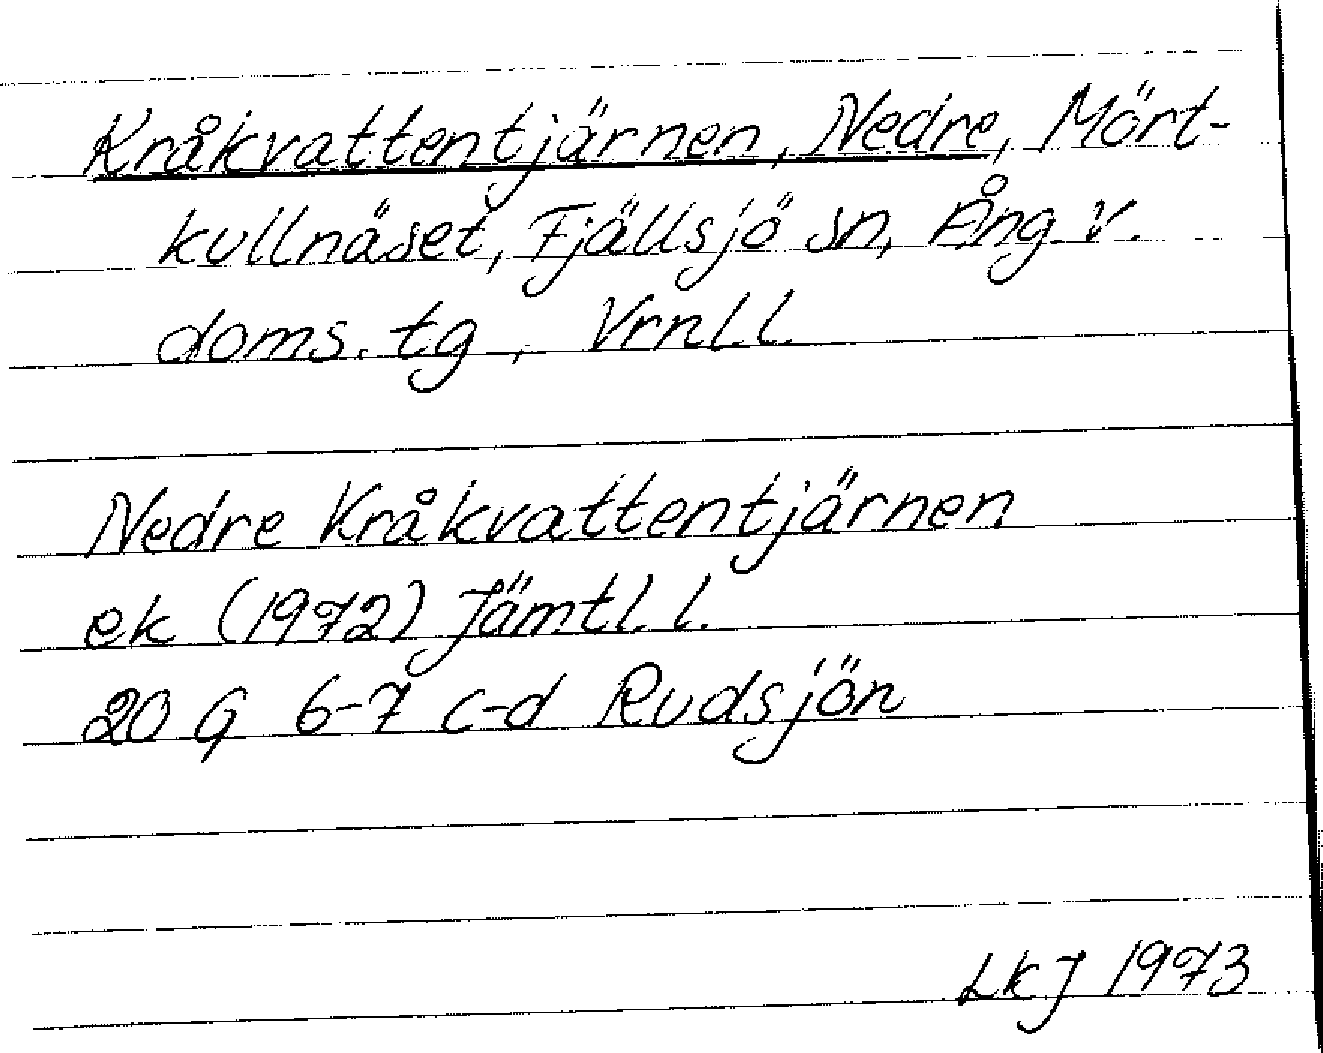 Kråkvattentjärnen, Nedre, Mört-
kullnäset, Fjällsjö sn, Ång v.
doms. tg, Vrnl l.
Nedre Kråkvattentjärnen
ek (1972) Jämtl. l.
20 G 6-7 c-d Rudsjön
LkJ 1973